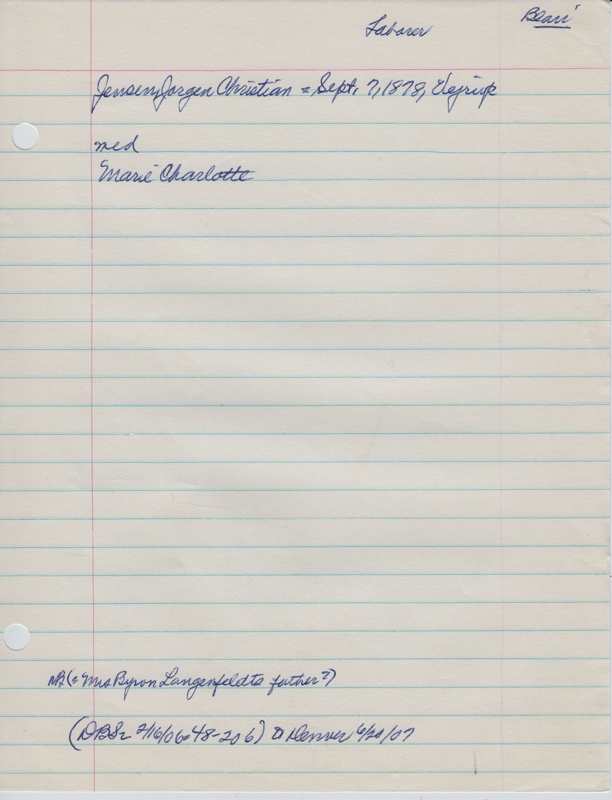 Blair
Laborer
Jensen, Jorgen Christian = Sept. 7, 1878, Vejrup
med
Marie Charlotte
(= Mrs Byron Langenfeldts father?)
(DBS 2/16/06-48-206) Denver 6/20/07